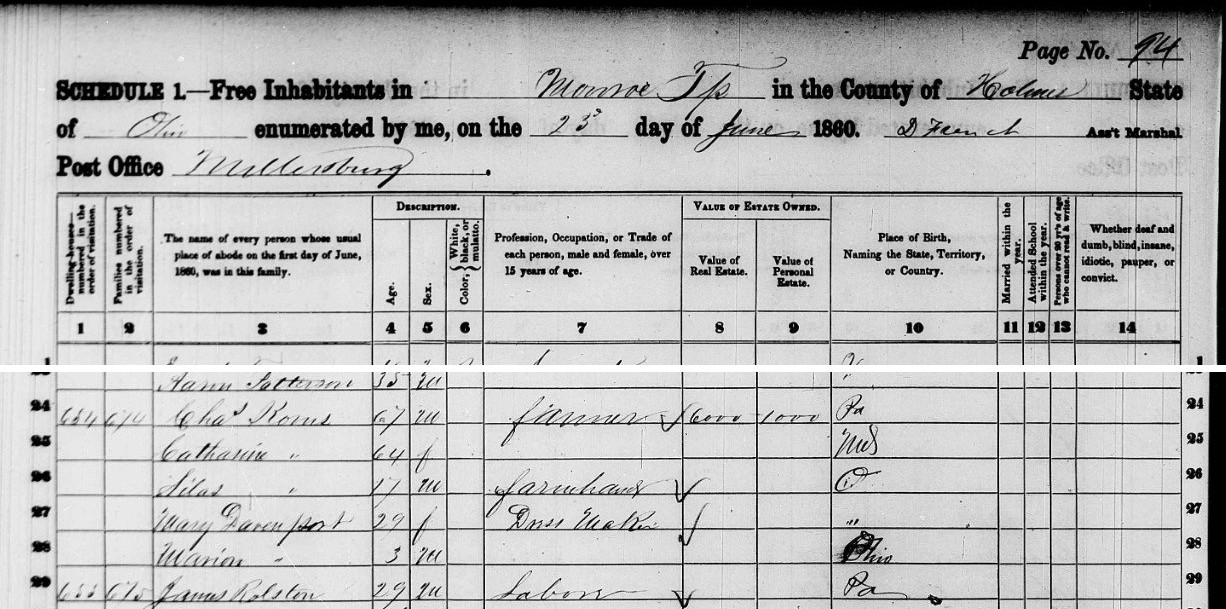 Page No. 94
SCHEDULE 1.—Free Inhabitants in Monroe Tp in the County of Holmes State
of Ohio enumerated by me, on the 23d day of June 1860. D French Ass't Marshal
Post Office Millersburg.
Dwelling-houses—numbered in the order of visitation.
Families numbered in the order of visitation.
The name of every person whose usual place of abode on the first day of June, 1860, was in this family.
DESCRIPTION.
Age.
Sex.
Color, { White, black, or mulatto.
Profession, Occupation, or Trade of each person, male and female, over 15 years of age.
VALUE OF ESTATE OWNED.
Value of Real Estate.
Value of Personal Estate.
Place of Birth, Naming the State, Territory, or Country.
Married within the year.
Attended School within the year.
Persons over 20 y'rs of age who cannot read & write.
Whether deaf and dumb, blind, insane, idiotic, pauper, or convict.
1 2 3 4 5 6 7 8 9 10 11 12 13 14
1 1
Patterson 35 m "
24 654 674 Chas 67 m farmer 6000 1000 Pa 24
25 Catharine " 64 f Md 25
26 Silas " 17 m farmhand O 26
27 Mary Davenport 29 f Dress Maker " 27
28 Marion " 3 m Ohio 28
29 655 675 James Rolston 29 m Labor Pa 29